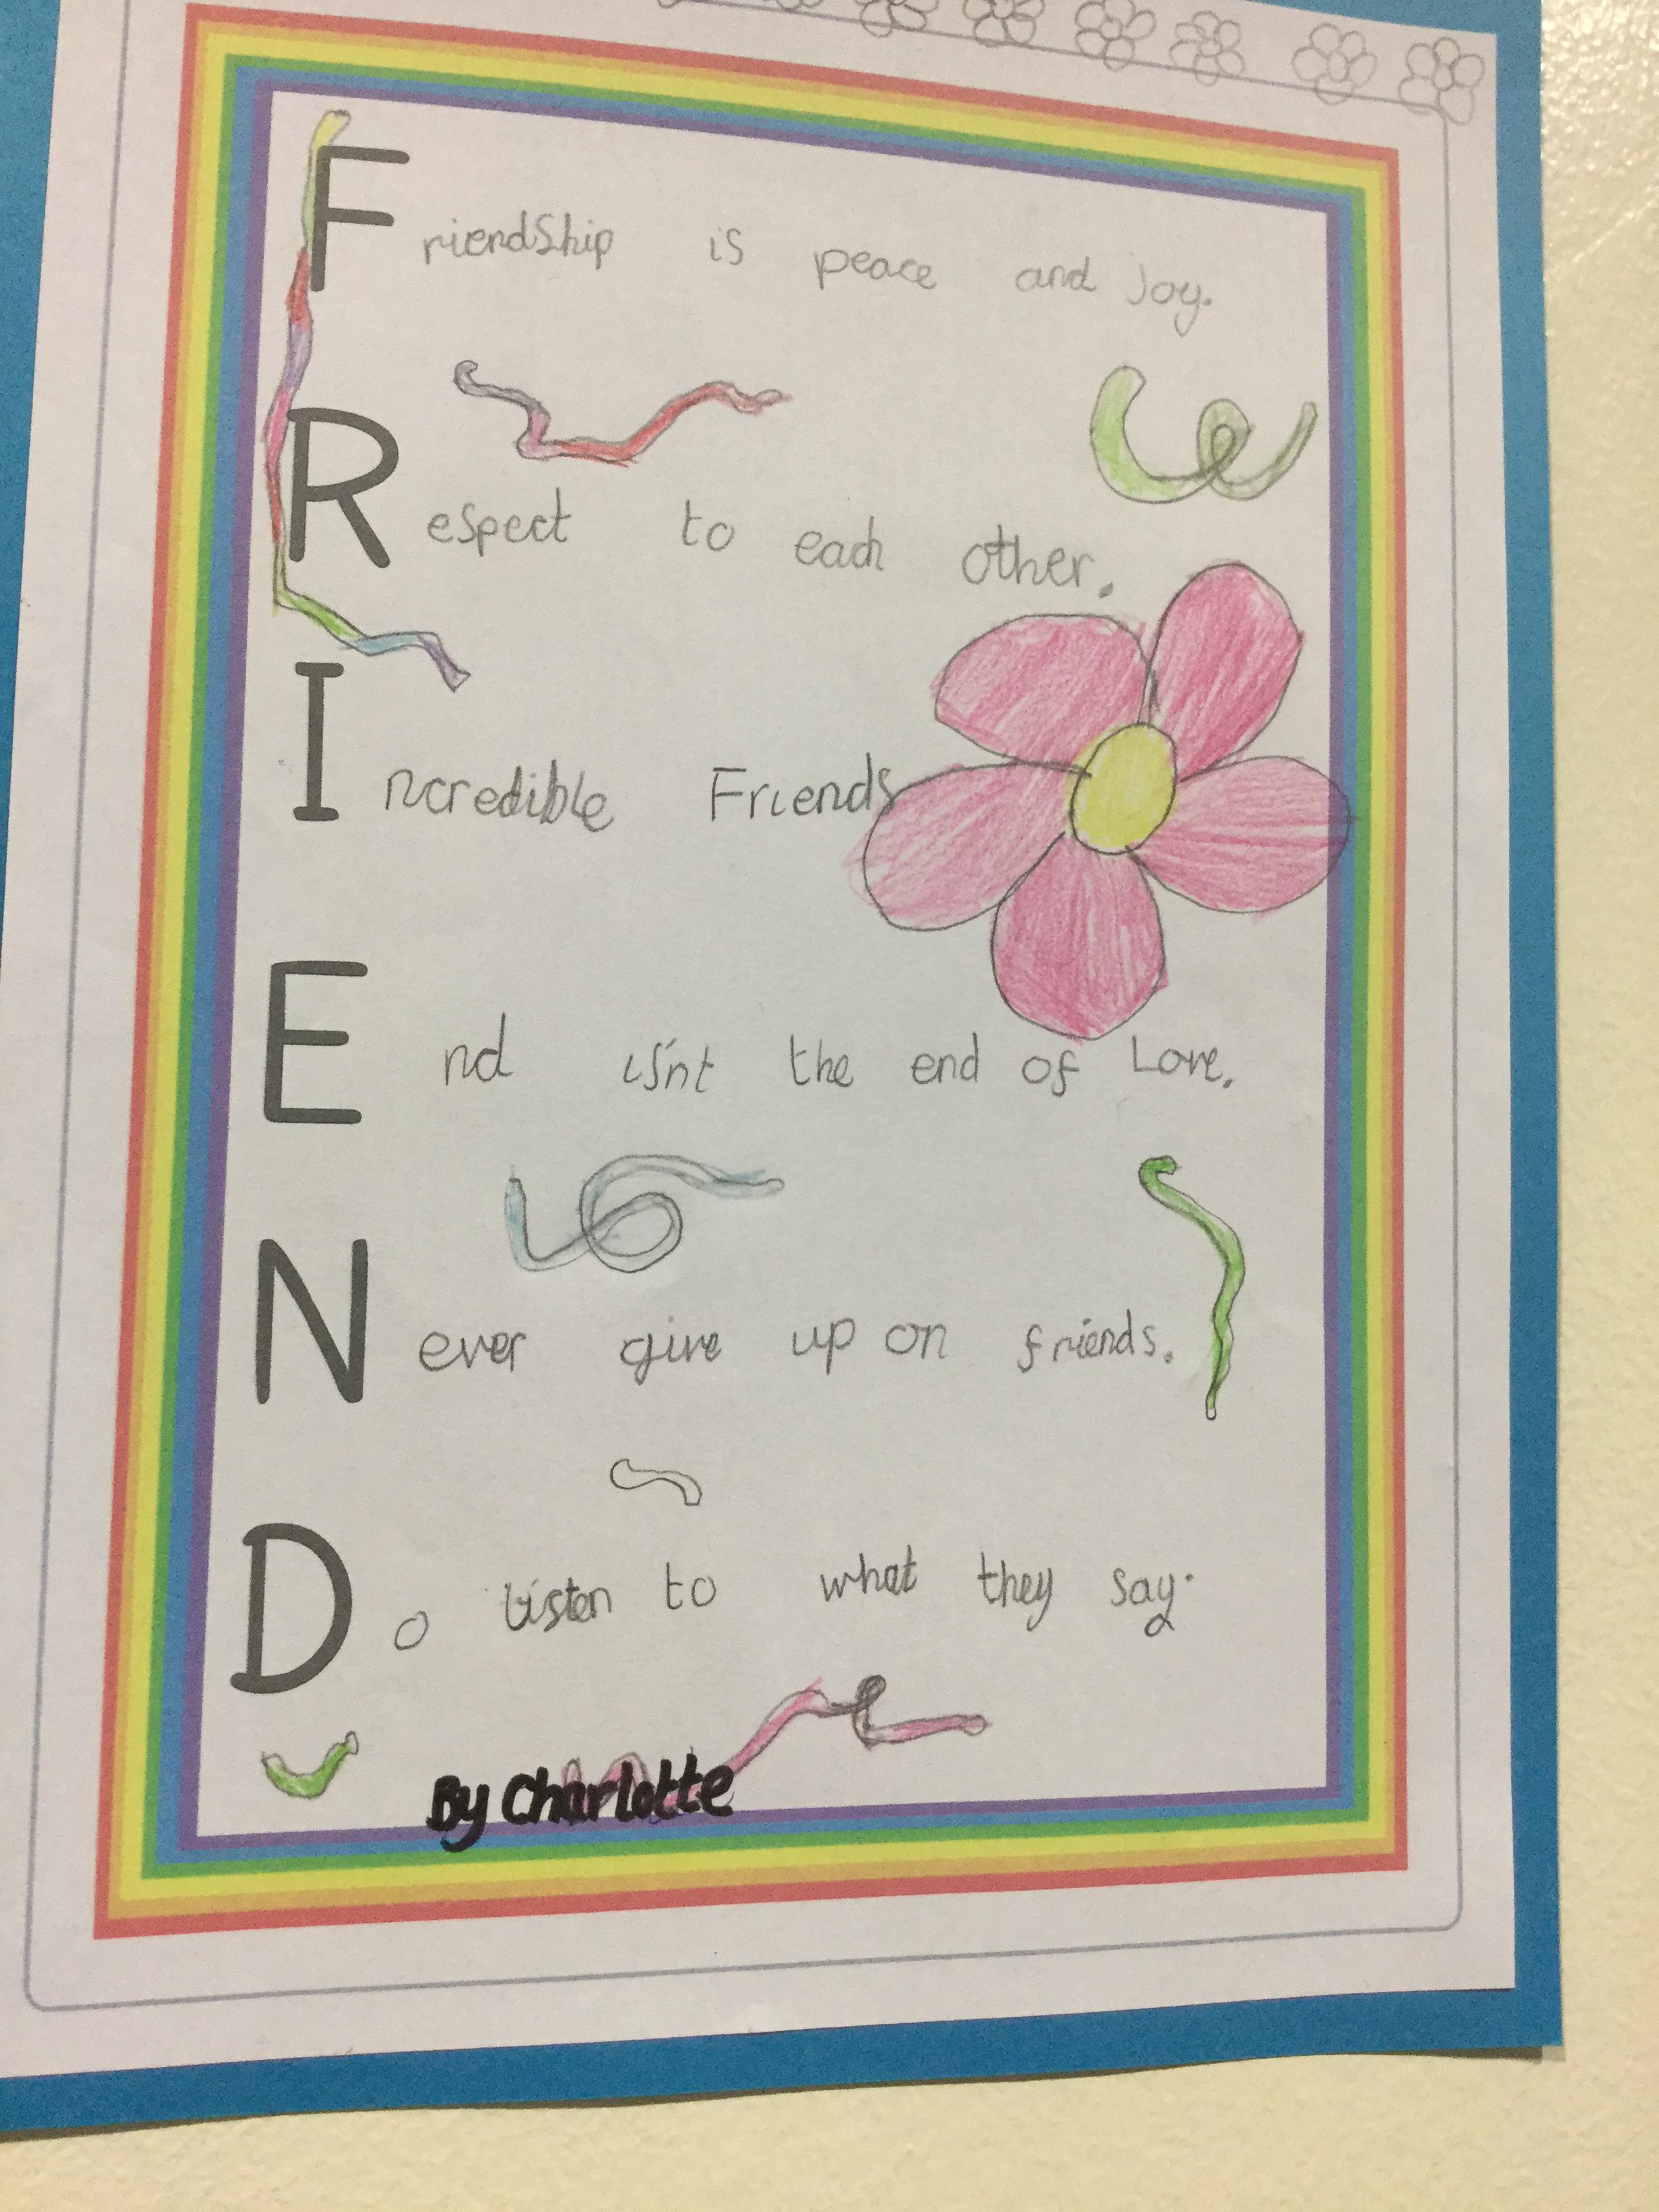 FriendShip is peace and Joy.
Respect to each other.
Incredible Friends
End isn't the end of Love.
Never give up on friends.
Do listen to what they say.
By Charlotte